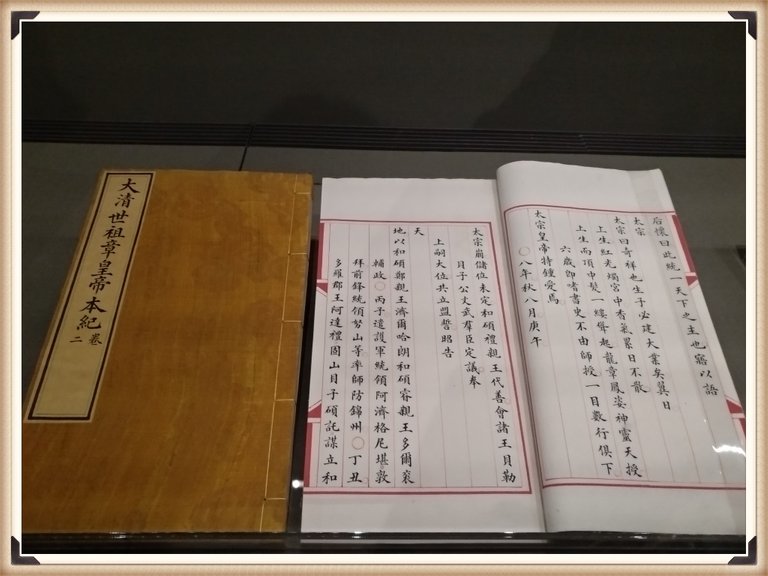 大清世祖章皇帝本紀 卷二
后懷曰此統一天下之主也寤以語
太宗
太宗曰奇祥也生子必建大業矣翼日
上生紅光燭宮中香氣累日不散
上生而頂中髮一縷聳起龍章鳳姿神靈天授
六歲即嗜書史不由師授一目數行俱下
太宗皇帝特鍾愛焉
〇八年秋八月庚午
太宗崩儲位未定和碩禮親王代善會諸王貝勒
貝子公文武羣臣定議奉
上嗣大位共立盟誓昭告
天
地以和碩鄭親王濟爾哈朗和碩睿親王多爾袞
輔政〇丙子遣護軍統領阿濟格尼堪敦
拜前鋒統領努山等率師防錦州〇丁丑
多羅郡王阿達禮固山貝子碩託謀立和